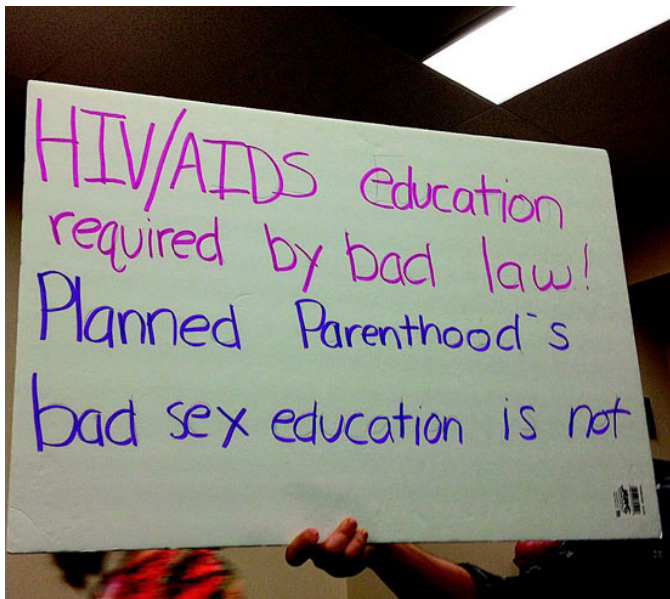 HIV/AIDS education
required by bad law!
Planned Parenthood's
bad sex education is not